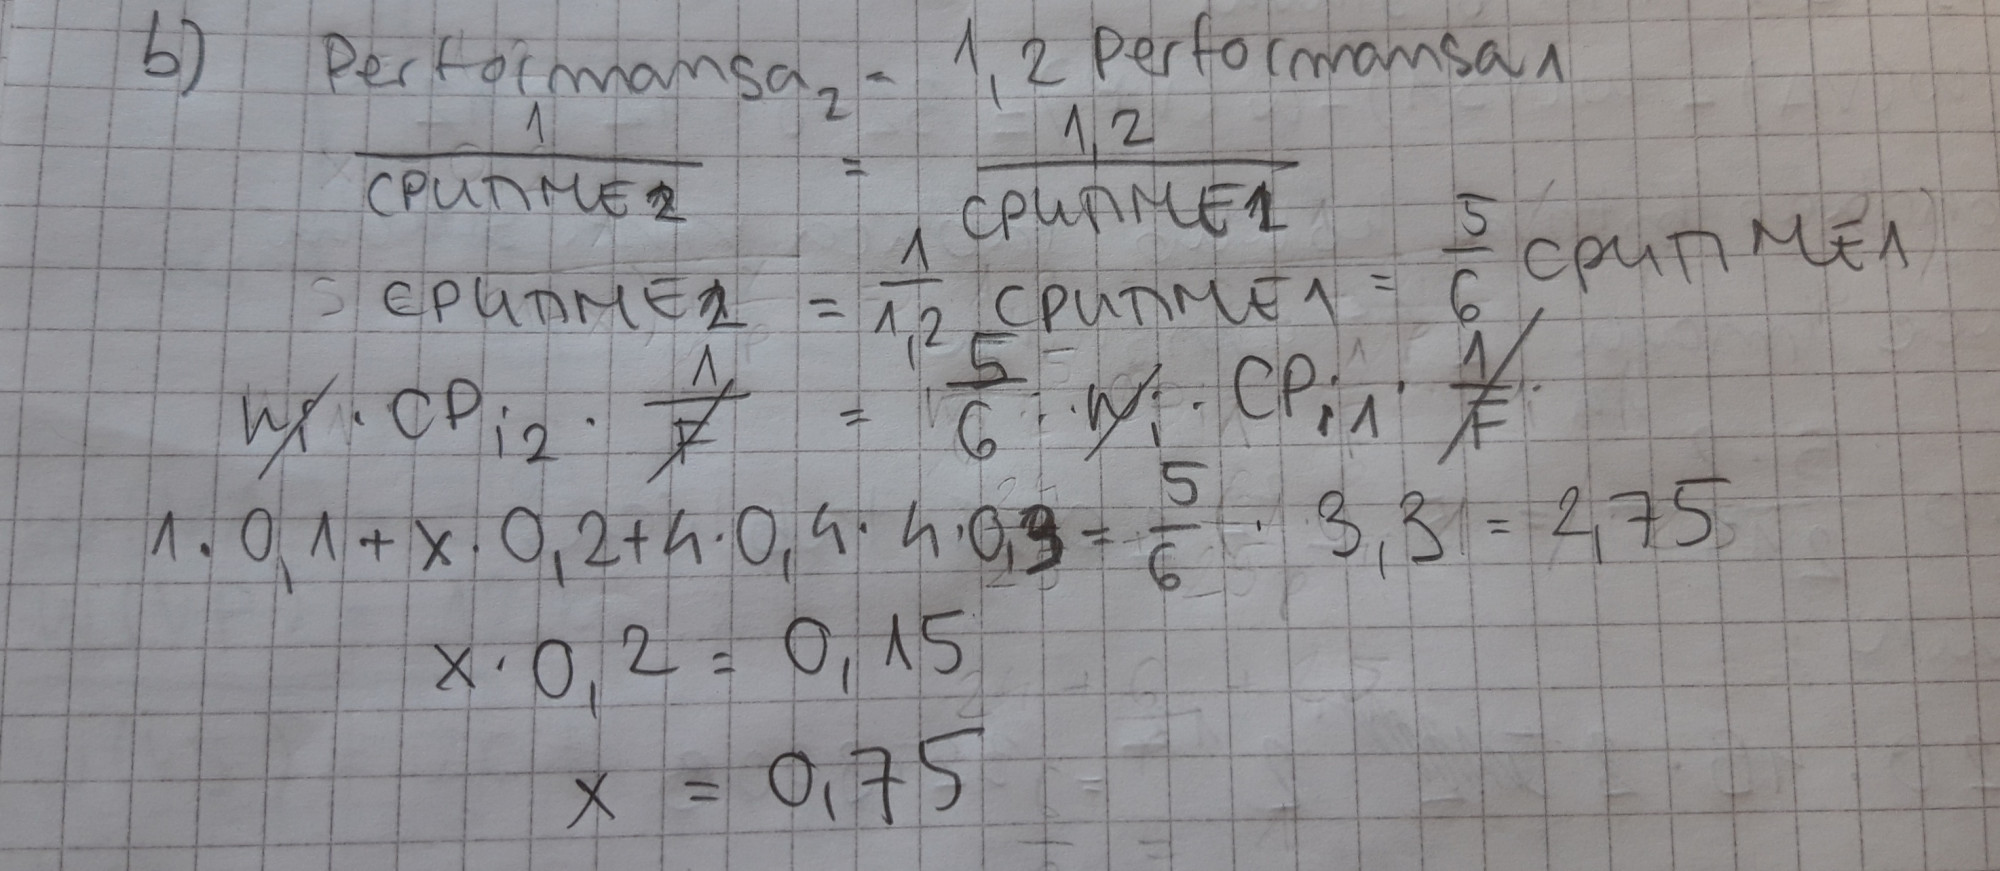 b) Performansa₂ = 1,2 Performansa1
1 / CPUTIME2 = 1,2 / CPUTIME1
CPUTIME2 = 1/1,2 CPUTIME1 = 5/6 CPUTIME1
Ni · CPi2 · 1/F = 5/6 · Ni · CPi1 · 1/F
1 · 0,1 + x · 0,2 + 4 · 0,4 · 4 · 0,3 = 5/6 · 3,3 = 2,75
x · 0,2 = 0,15
x = 0,75